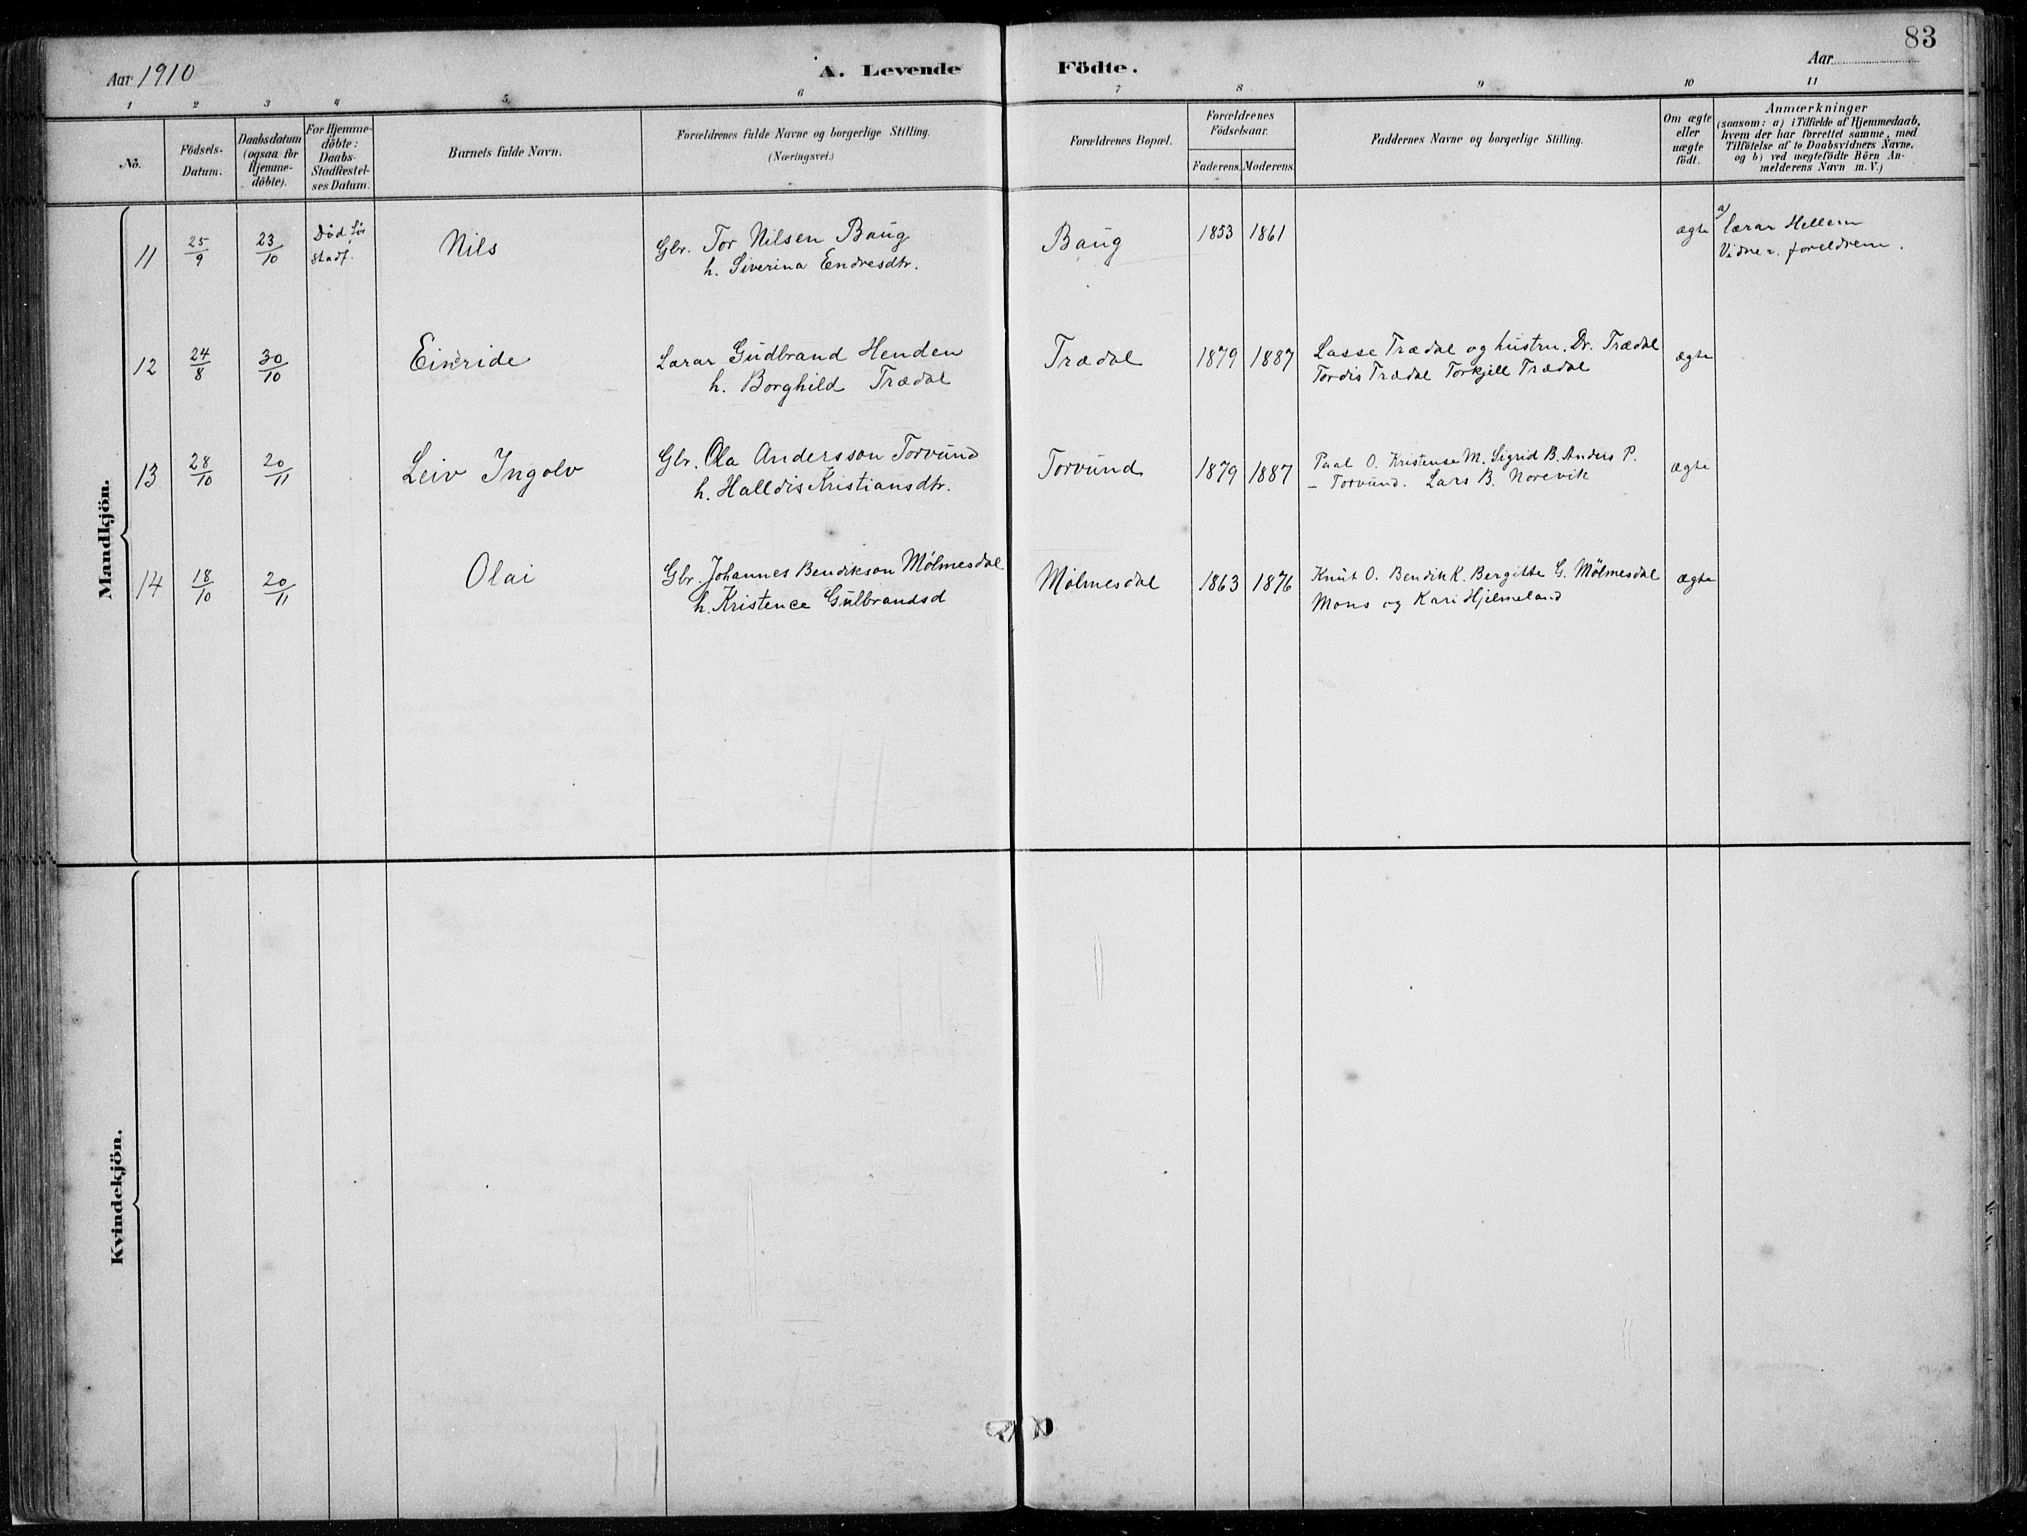 83
Aar 1910
A. Levende Födte.
Aar
1 2 3 4 5. 6 7 8 9 10 11
No.
Födsels-Datum.
Daabsdatum (ogsaa for Hjemme-döbte).
For Hjemme-döbte: Daabs-Stadfæstel-ses Datum.
Barnets fulde Navn.
Forældrenes fulde Navne og borgerlige Stilling.
(Næringsvei.)
Forældrenes Bopæl.
Forældrenes Födselsaar.
Faderens. Moderens.
Faddernes Navne og borgerlige Stilling.
Om ægte eller uægte födt.
Anmærkninger
(saasom: a) i Tilfælde af Hjemmedaab,
hvem der har forrettet samme, med
Tilföielse af to Daabsvidners Navne.
og b) ved uægtefödte Börn An-
melderens Navn m. V.)
Mandkjön.
11 25/9 23/10 Död før stadf. Nils Gbr. Tor Nilsen Baug
h. Siverina Endresdtr.
Baug 1853 1861 ægte a) Lærar Hellem
Vidner. foreldrene.
12 24/8 30/10 Einride Lærar Gudbrand Henden
h. Borghild Trædal
Trædal 1879 1887 Lasse Trædal og hustru. Dr. Trædal
Tordis Trædal Torkjell Trædal
ægte
13 28/10 20/11 Leiv Ingolv Gbr. Ola Andersson Torvund
h. Halldis Kristiansdtr.
Torvund 1879 1887 Paal O. Kristense M. Sigrid B. Anders P.
– Torvund. Lars B. Norevik
ægte
14 18/10 20/11 Olai Gbr. Johannes Bendikson Mølmesdal
h. Kristence Gulbrandsd
Mølmesdal 1863 1876 Knut O. Bendik K. Bergitte G. Mølmesdal
Mons og Kari Hjelmeland
ægte
Kvindekjön.